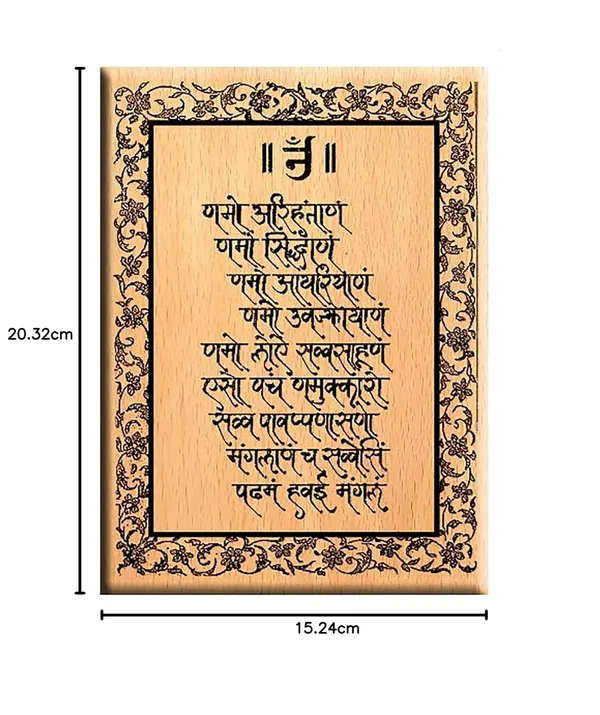 ॥ ॐ ॥
णमो अरिहंताणं
णमो सिद्धाणं
णमो आयरियाणं
णमो उवज्झायाणं
णमो लोऐ सव्वसाहूणं
एसो पचं णमुक्कारो
सव्व पावप्पणासणा
मंगलाणं च सव्वेसिं
पढमं हवई मंगलं
20.32cm
15.24cm